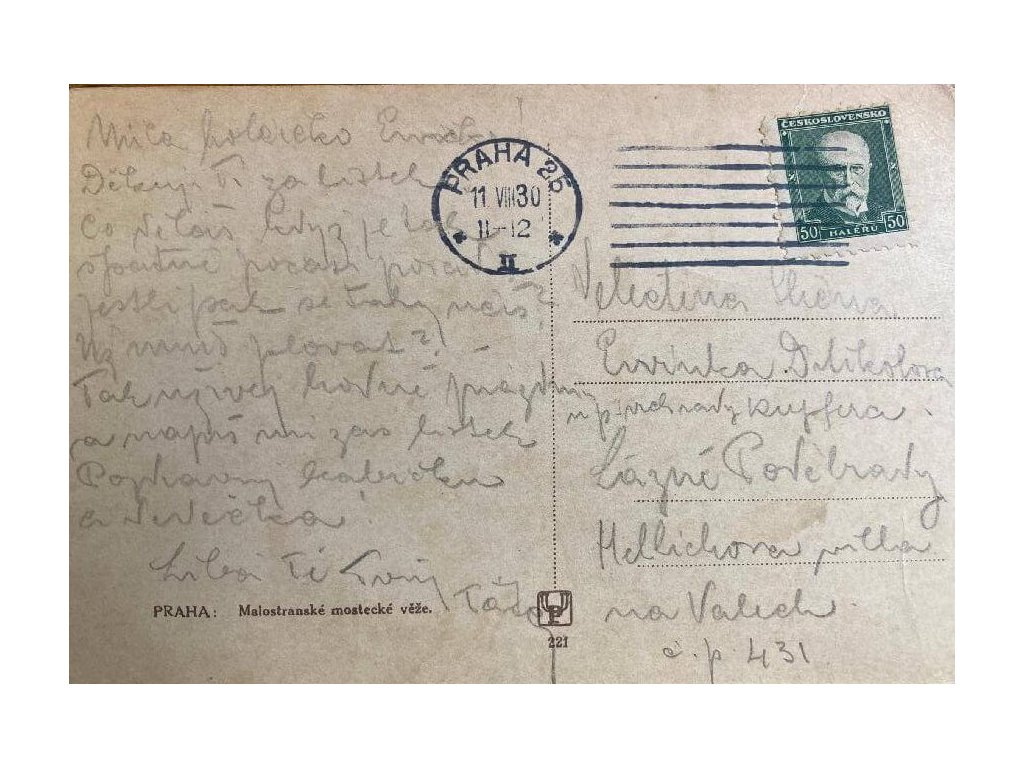 Milá holečko
Děkuji Ti za lístek
Co děláš když je tak
špatné počasí pořád
jestli pak se taky učíš?
Už umíš plovat?
Tak užívej hodně prázdnin
a napiš mi zas lístek
Pozdravuj babičku
a dědečka
Líbá Tě Tvůj
Táta
PRAHA: Malostranské mostecké věže.
PRAHA 25
11 VIII 30
11-12
II
ČESKOSLOVENSKO
50 50
HALÉŘŮ
221
Velectěná slečna
Evinka
u p. vrchrady Kupfera
Lázně Poděbrady
Hellichova villa
na Valech
č. p. 431